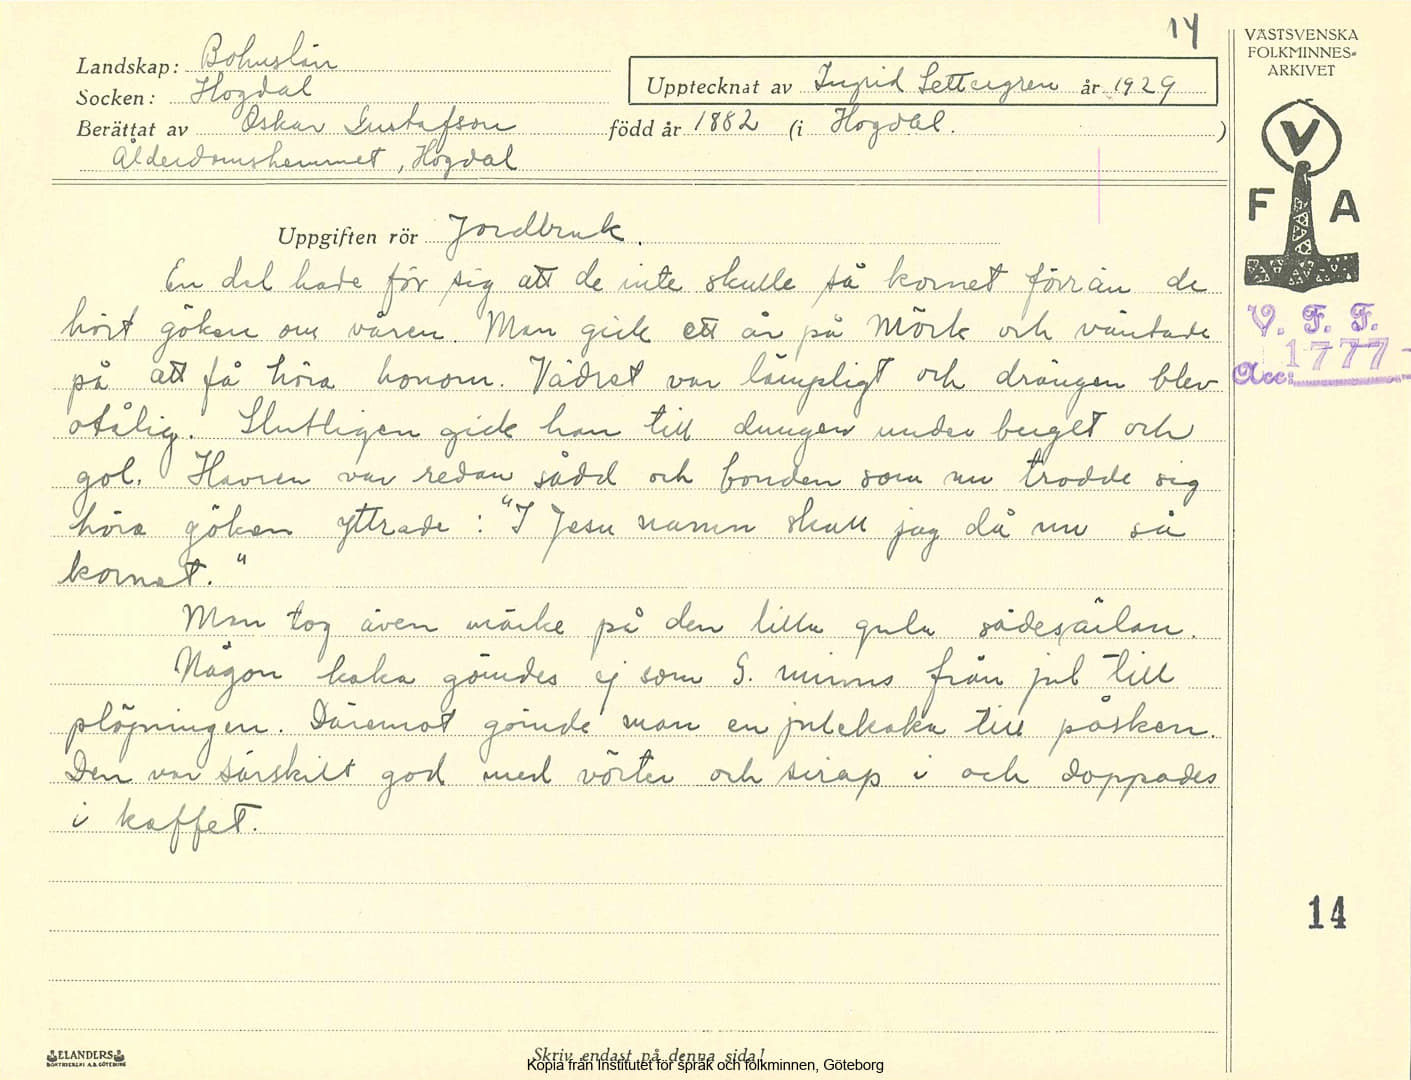 14
Landskap: Bohuslän
Socken: Hogdal
Upptecknat av Ingrid år 1929
Berättat av Oskar Gustafson född år 1882 (i Hogdal. )
Ålderdomshemmet, Hogdal
Uppgiften rör Jordbruk.
En del hade för sig att de inte skulle så kornet förrän de
hört göken om våren. Man gick ett år på Mörk och väntade
på att få höra honom. Vädret var lämpligt och drängen blev
otålig. Slutligen gick han till dungen under berget och
gol. Havren var redan sådd och bonden som nu trodde sig
höra göken yttrade: "I Jesu namn skall jag då nu så
kornet."
Man tog även märke på den lilla gula sädesärlan.
Någon kaka gömdes ej som G. minns från jul till
plöjningen. Däremot gömde man en julekaka till påsken.
Den var särskilt god med vörter och sirap i och doppades
i kaffet.
VÄSTSVENSKA
FOLKMINNES-
ARKIVET
V
F A
V. F. F.
Acc: 1777
14
ELANDERS
BOKTRYCKERI A.B. GÖTEBORG
Skriv endast på denna sida!
Kopia från Institutet för språk och folkminnen, Göteborg